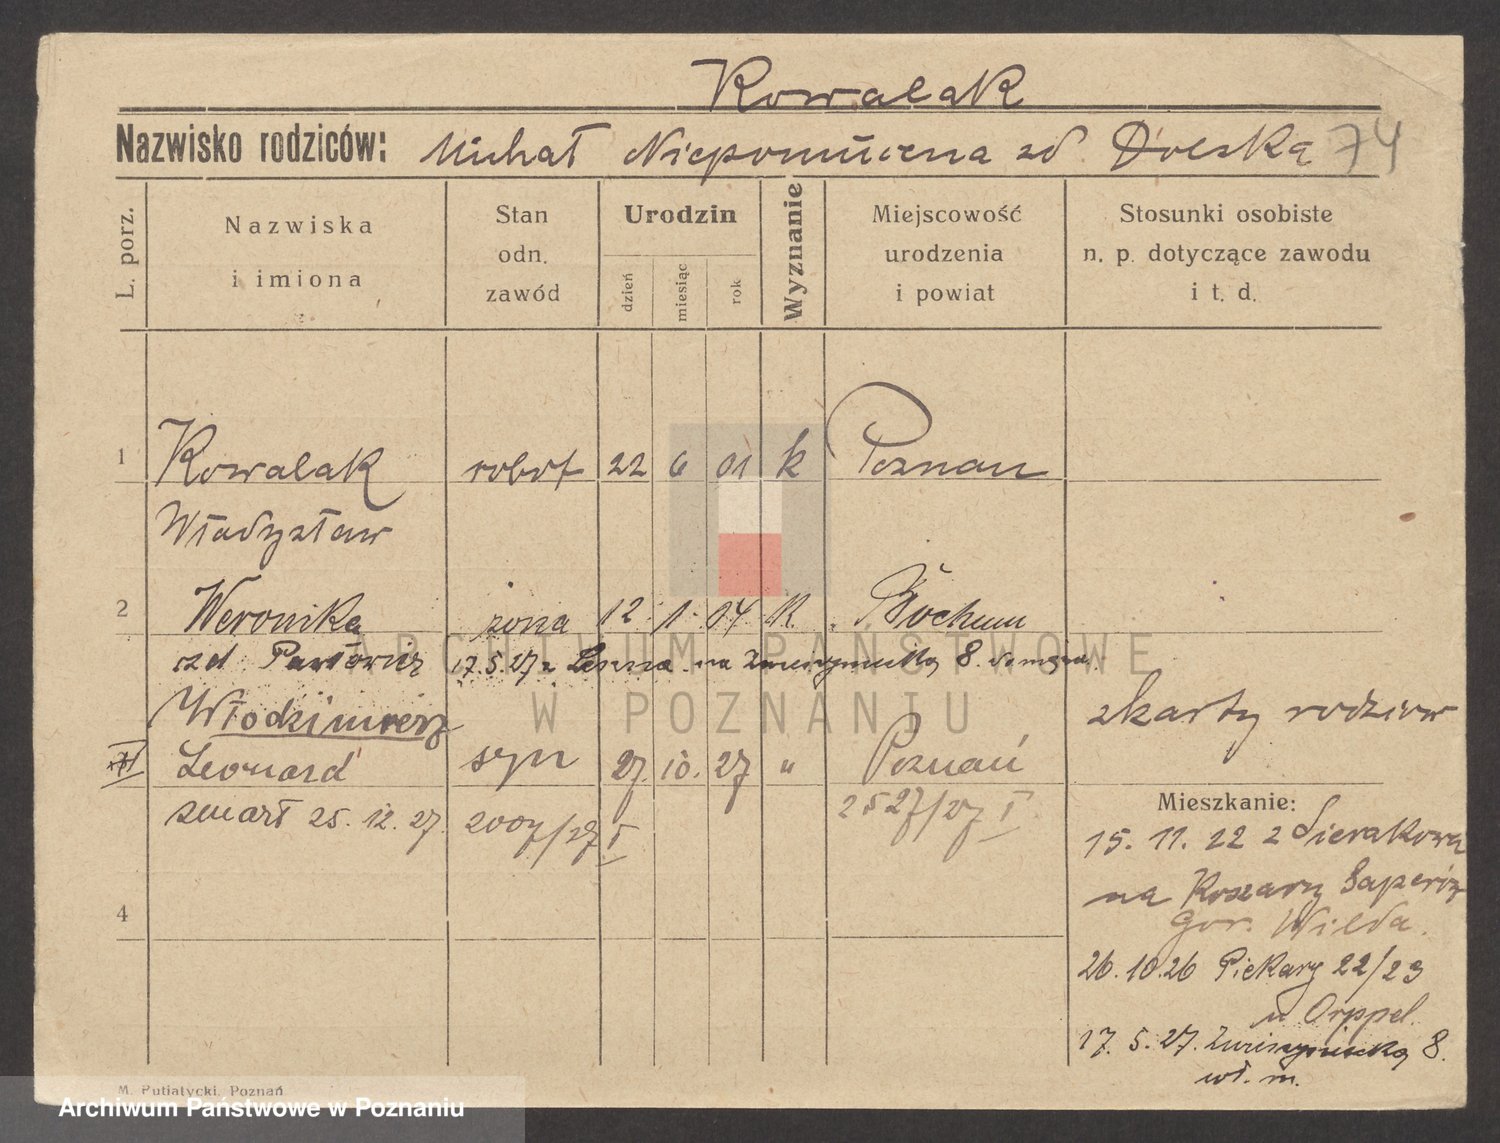 Kowalak
Nazwisko rodziców: Michał Niepomucena zd. Dolska 74
L. porz.
Nazwiska i imiona
Stan odn. zawód
Urodzin
dzień miesiąc rok
Wyznanie
Miejscowość urodzenia i powiat
Stosunki osobiste n. p. dotyczące zawodu i t. d.
1 Kowalak robot 22 6 01 k Poznan
Władysław
2 Weronika zona 12. 1. 04 K. Bochum
zd. 17.5.27 z Leszna na 8.
z karty rodziców
Włodzimierz
Leonard syn 27. 10. 27 " Poznań
zmarł 25. 12. 27. 2007/27 I 2527/27 I
4
Mieszkanie:
15. 11. 22 z Sierakowa
na Koszary Saperów
Gór. Wilda.
26. 10. 26 Piekary 22/23
u Orppel.
17. 5. 27. 8.
wł. m.
M. Putiatycki, Poznań
ARCHIWUM PAŃSTWOWE
W POZNANIU
Archiwum Państwowe w Poznaniu